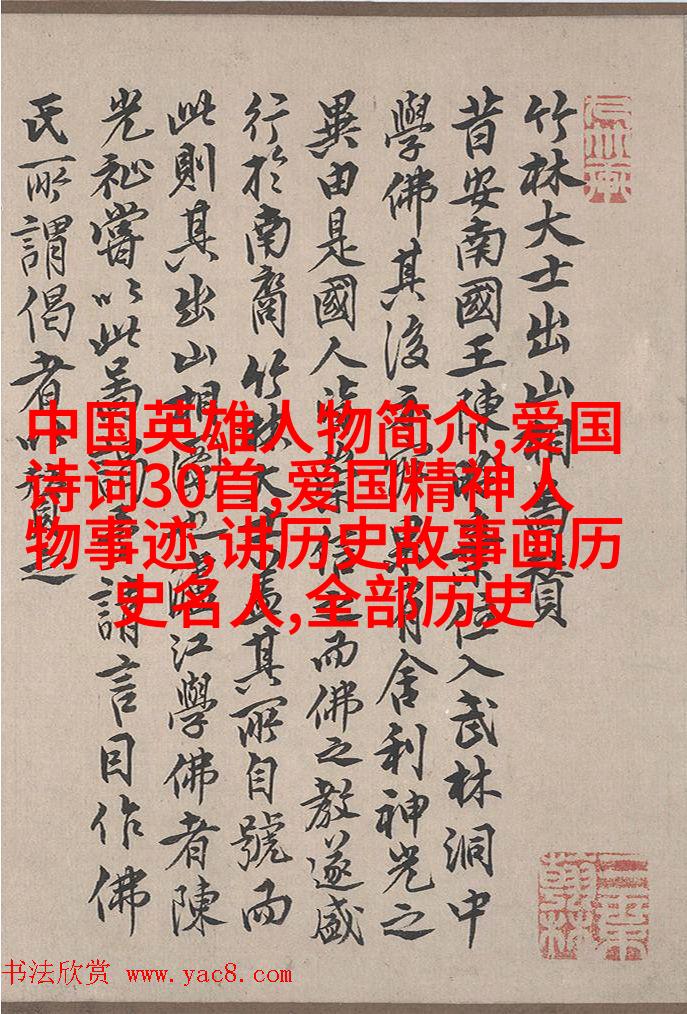 竹林大士出山
昔安南國王陳 棄位入武林洞中
學佛其後 果有舍利神光之
異由是國人 信之而佛之教遂盛
行於南裔竹林大士 其所自號而
此則其出山相 江學佛者陳
光祉嘗以此 請言目作佛
氏所謂偈者
中国英雄人物简介,爱国
诗词30首,爱国精神人
物事迹,讲历史故事画历
史名人,全部历史
书法欣赏 www.yac8.com